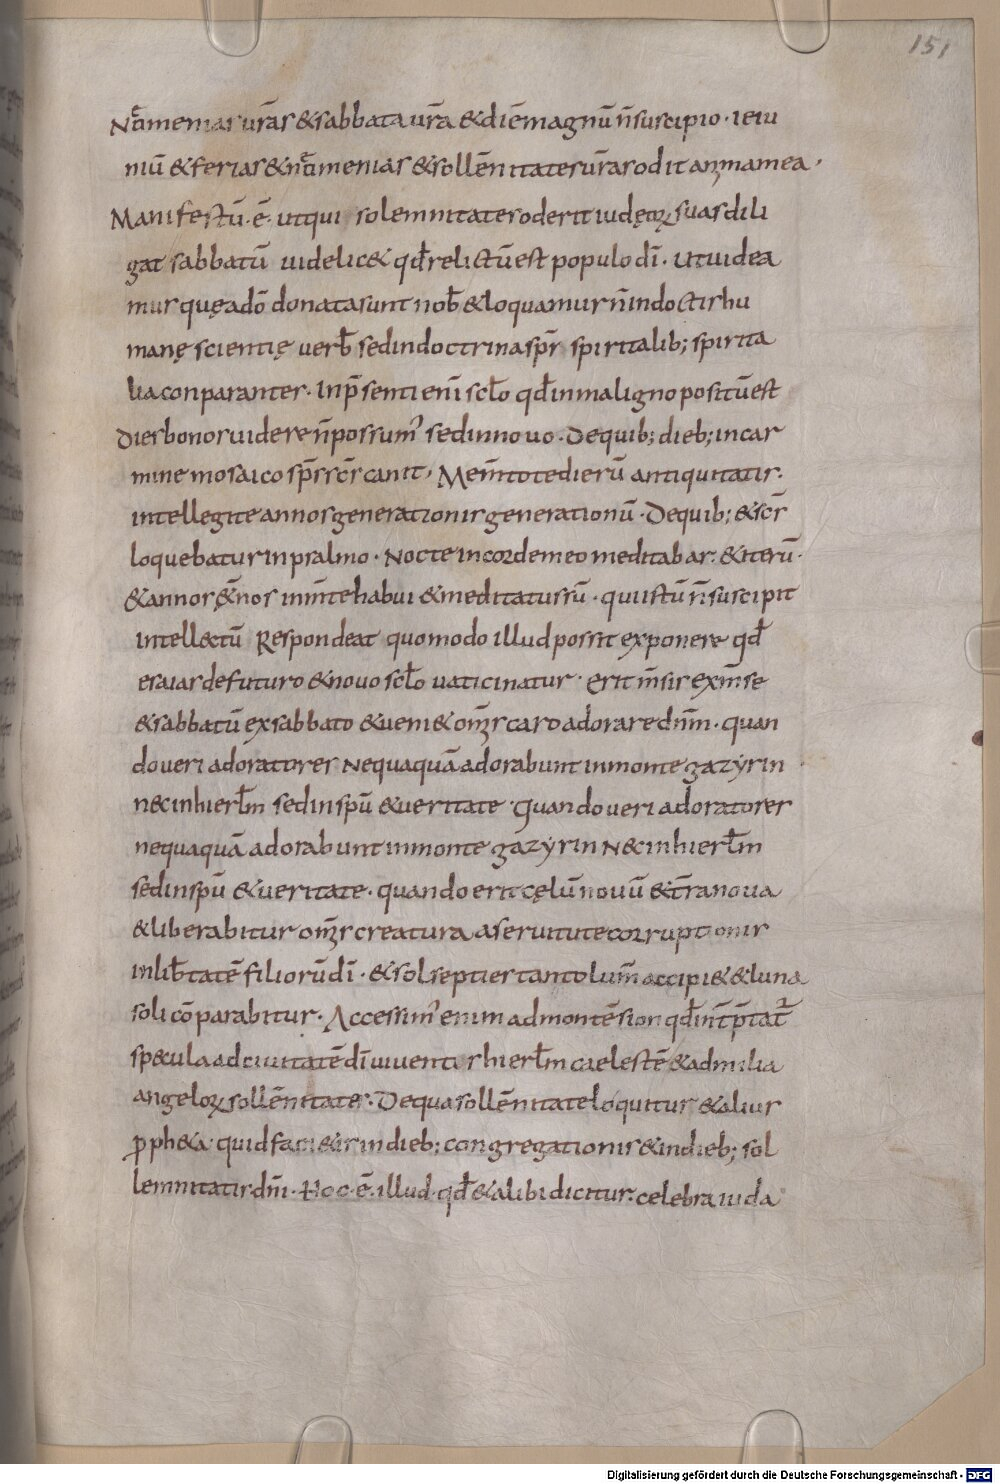 151
Nꝋmenias ur̄as &sabbata ur̄a &diē magnū n̄ suscipio · ieiu
niū &ferias &nꝋmenias &sollēnitates ur̄as odit anima mea ·
Manifestū · ē · ut qui solemnitates oderit iudęorꝝ suas dili
gat sabbatū uidelic& qđ relictū est populo dī · ut uidea
mur quę a dō donata sunt nob̄ & loquamur n̄ in doctis hu
manę scientię uerb̄ sed in doctrina sp̄s spiritalib; spirita
lia conparantes · In p̄senti enī scło qđ in maligno positū est
dies bonos uidere n̄ possum' sed in nouo · De quib; dieb; in car
mine mosaico sp̄s sc̄s canit · Mem̄tote dierū antiquitatis ·
intellegite annos generationis generationū · De quib; & sc̄s
loquebatur in psalmo · Nocte in corde meo meditabar · & iterū ·
& annos &̄nos in m̄te habui & meditatus sū · qui istū n̄ suscipit
intellectū Respondeat quomodo illud possit exponere qđ
esaias de futuro & nouo scło uaticinatur · Erit m̄sis ex m̄se
& sabbatū ex sabbato & ueni& om̄s caro adorare dn̄m · quan
do ueri adoratores Nequaquā adorabunt in monte gazyrin
n& in hierłm sed in spū & ueritate · Quando ueri adoratores
nequaquā adorabunt in monte gazyrin N& in hierłm
sed in spū & ueritate · quando erit cęlū nouū & t̄ra noua
& liberabitur om̄s creatura a seruitute corruptionis
in lib̄tatē filiorū dī · & sol septies tantō lum̄ accipi& & luna
soli cōparabitur · Accessim' enim ad montē sion qđ int̄p̄tat̄
specula ad ciuitatē dī uiuentis hierłm caelestē & ad milia
angelorꝝ sollēnitates · De qua sollēnitate loquitur & alius
ꝓph&a · quid faci&is in dieb; congregationis & in dieb; sol
lemnitatis dn̄i · Hoc · ē · illud · qđ & alibi dicitur · celebra iuda
Digitalisierung gefördert durch die Deutsche Forschungsgemeinschaft - DFG